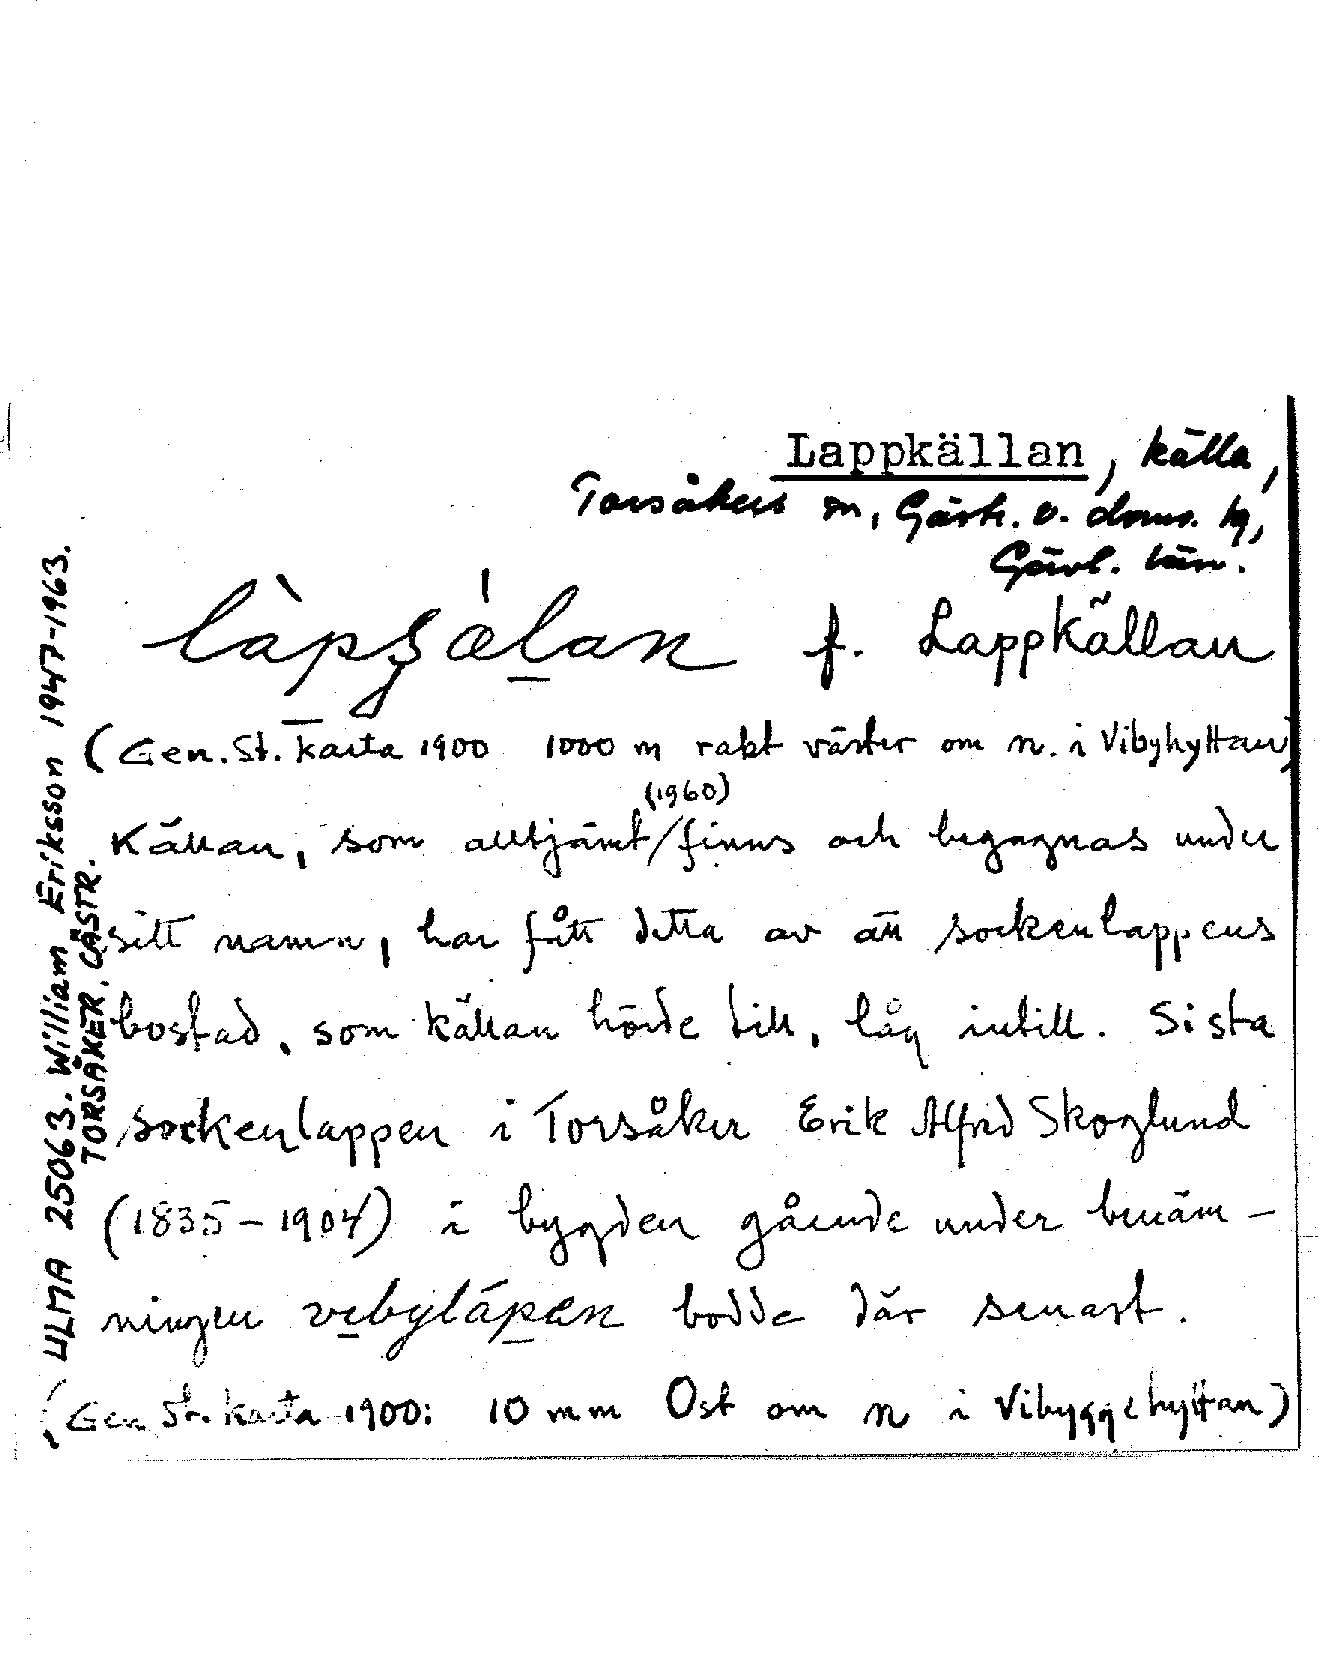 Lappkällan, källa,
Torsåkers sn, Gästr. ö. doms. hg,
Gävl. län.
làpʂǽlan f. Lappkällan
(Gen. St. karta 1900 1000 m rakt väster om n. i Vibyhyttan)
(1960)
Källan, som alltjämt/finns och begagnas under
sitt namn, har fått detta av att sockenlappens
bostad, som källan hörde till, låg intill. Sista
sockenlappen i Torsåker Erik Alfred Skoglund
(1835-1904) i bygden gående under benäm-
ningen vebylápen bodde där senast.
(Gen St. karta 1900: 10 mm Ost om n i Vibyggehyttan)
ULMA 25063. William Eriksson 1947-1963.
TORSÅKER. GÄSTR.